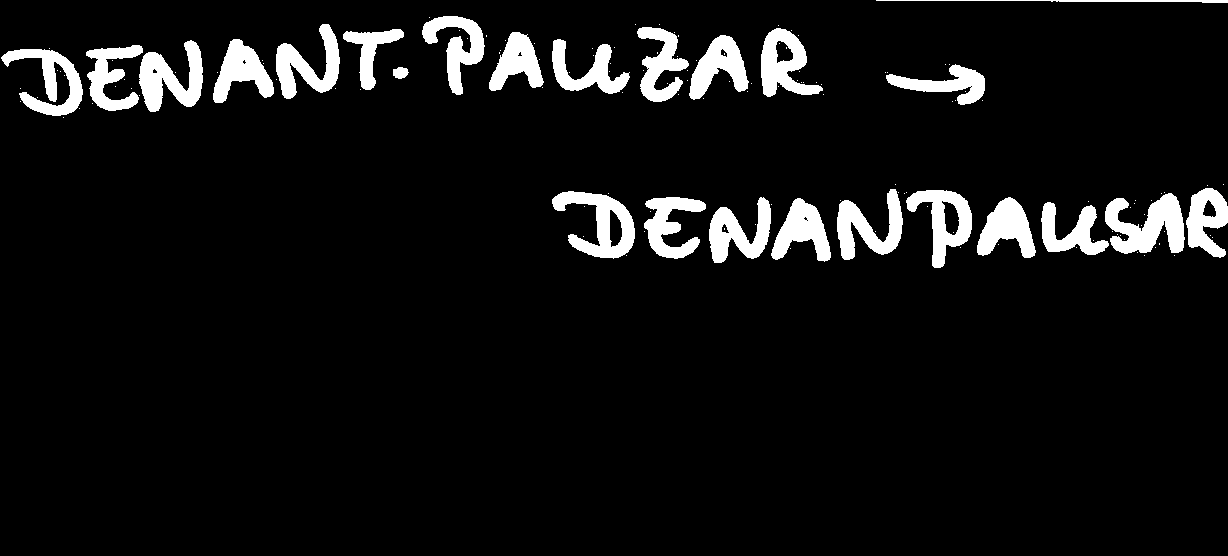 DENANT. PAUZAR →
DENANPAUSAR